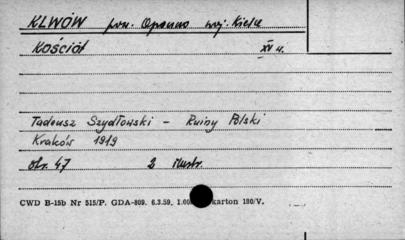 KLWÓW pow. Opoczno woj. Kielce
KOŚCIÓŁ XV w.
Tadeusz Szydłowski - Ruiny Polski
Kraków 1919
str. 47 2 ilustr.
CWD B-15b Nr 515/P. GDA-809. 6.3.59. 1.00 karton 180/V.